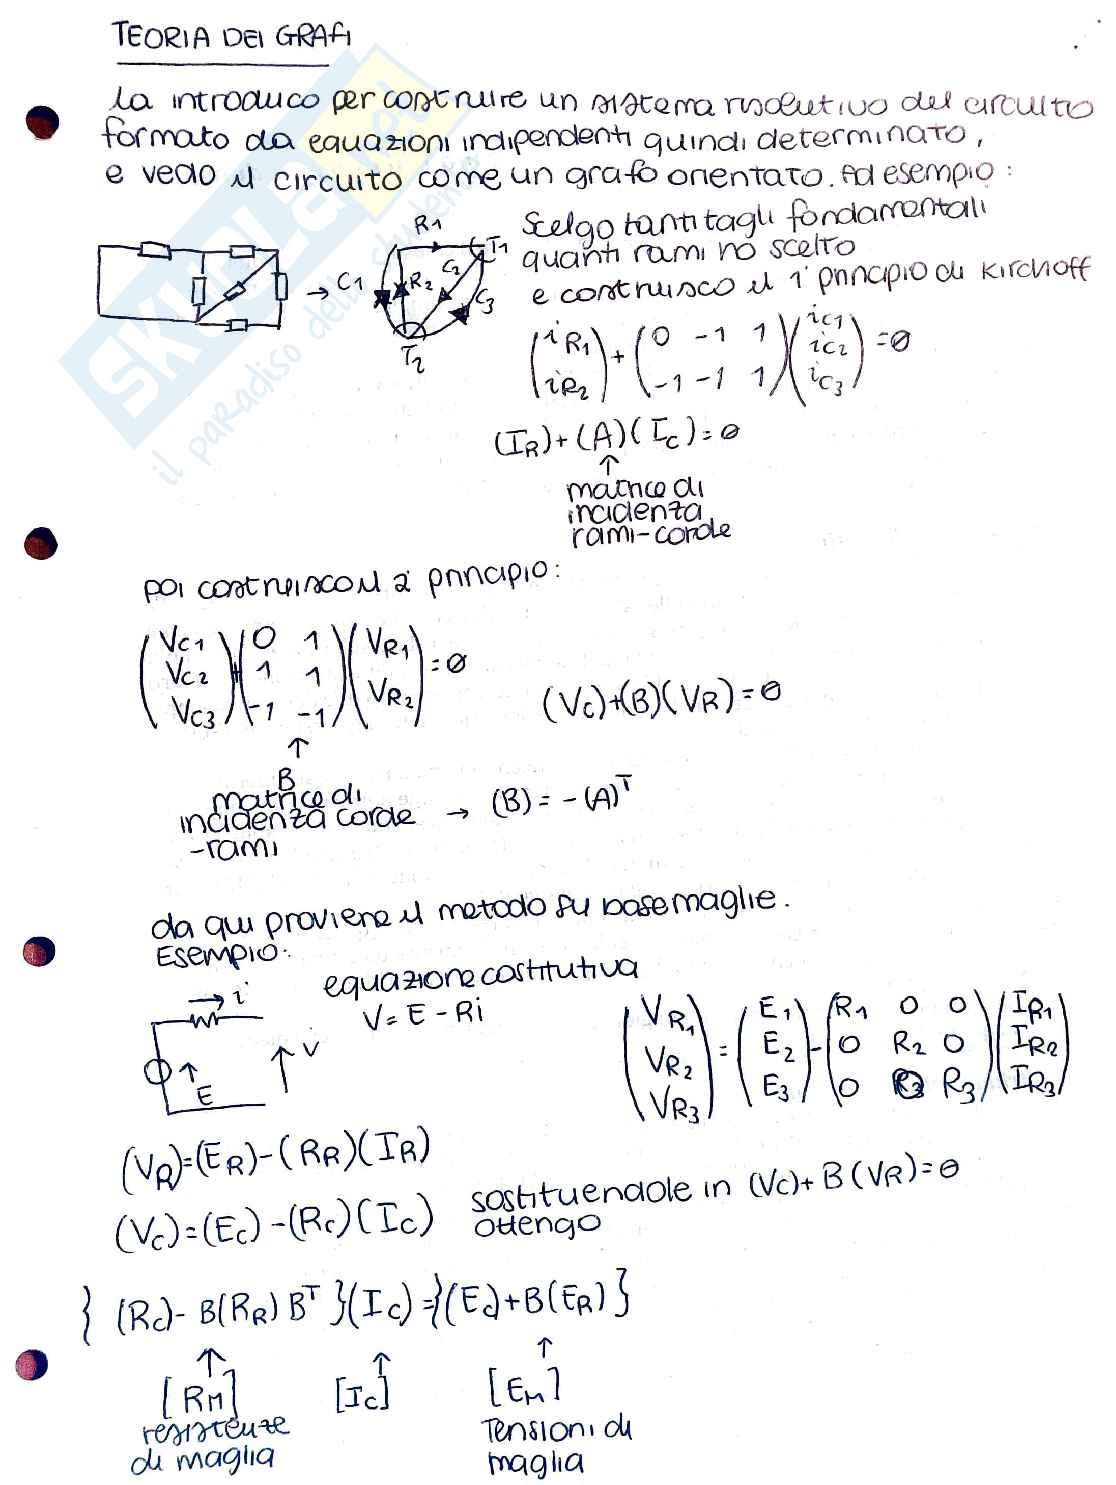 TEORIA DEI GRAFI
la introduco per costruire un sistema risolutivo del circuito
formato da equazioni indipendenti quindi determinato,
e vedo il circuito come un grafo orientato. Ad esempio:
Scelgo tanti tagli fondamentali
quanti rami ho scelto
e costruisco il 1° principio di Kirchoff
→ C1 R1 T1 R2 C2 C3 T2
(iR1 iR2) + (0 -1 1 / -1 -1 1) (iC1 iC2 iC3) = 0
(IR) + (A)(IC) = 0
↑
matrice di
incidenza
rami-corde
poi costruisco il 2° principio:
(VC1 VC2 VC3) + (0 1 / 1 1 / -1 -1) (VR1 VR2) = 0
(VC)+(B)(VR) = 0
↑
B
matrice di
incidenza corde
-rami
→ (B) = -(A)^T
da qui proviene il metodo su base maglie.
Esempio:
equazione costitutiva
V = E - Ri
i
V
E
(VR1 VR2 VR3) = (E1 E2 E3) - (R1 0 0 / 0 R2 0 / 0 R3) (IR1 IR2 IR3)
(VR) = (ER) - (RR)(IR)
(VC) = (EC) - (RC)(IC)
sostituendole in (VC) + B(VR) = 0
ottengo
{(RC) - B(RR) B^T}(IC) = {(EC) + B(ER)}
↑ ↑ ↑
[RM] [IC] [EM]
resistenze
di maglia
Tensioni di
maglia
SKUOLA.net
il paradiso dello studente